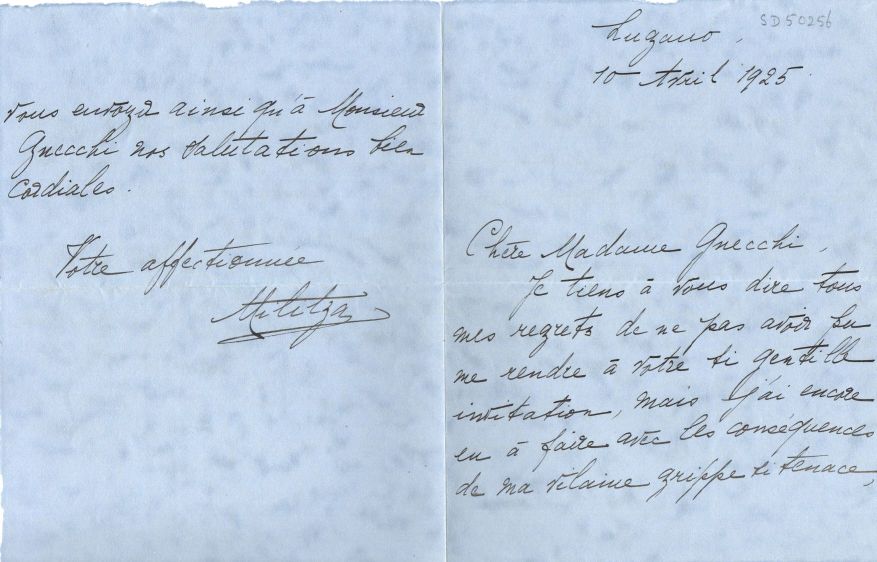 SD50256
Lugano,
10 Avril 1925.
Chère Madame Gnecchi,
Je tiens à vous dire tous
mes regrets de ne pas avoir pu
me rendre à votre si gentille
invitation, mais j'ai encore
eu à faire avec les conséquences
de ma vilaine grippe si tenace,
vous envoyer ainsi qu'à Monsieur
Gnecchi nos salutations bien
cordiales.
Votre affectionnée
Militza